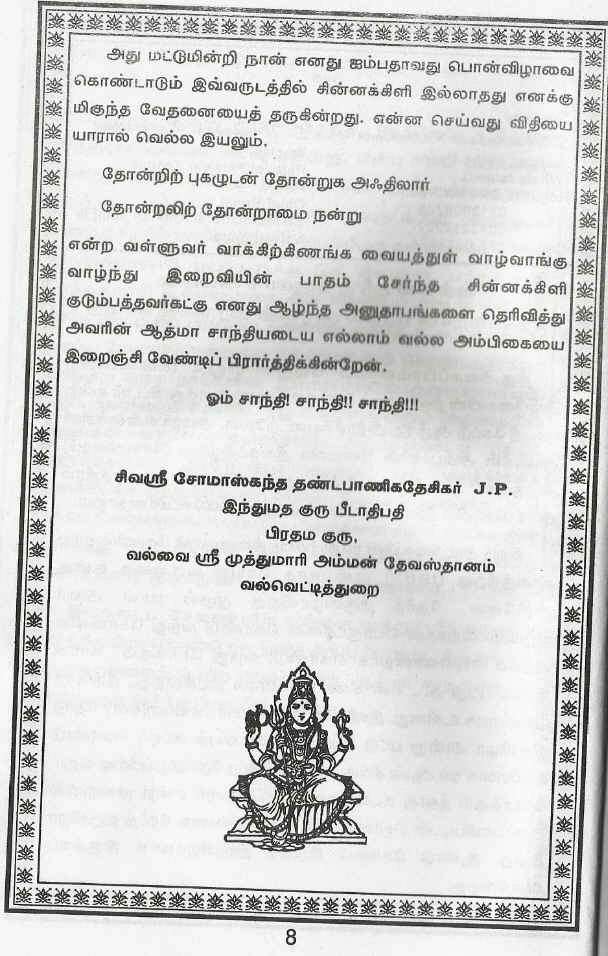 அது மட்டுமின்றி நான் எனது ஐம்பதாவது பொன்விழாவை
கொண்டாடும் இவ்வருடத்தில் சின்னக்கிளி இல்லாதது எனக்கு
மிகுந்த வேதனையைத் தருகின்றது. என்ன செய்வது விதியை
யாரால் வெல்ல இயலும்.
தோன்றிற் புகழுடன் தோன்றுக அஃதிலார்
தோன்றலிற் தோன்றாமை நன்று
என்ற வள்ளுவர் வாக்கிற்கிணங்க வையத்துள் வாழ்வாங்கு
வாழ்ந்து இறைவியின் பாதம் சேர்ந்த சின்னக்கிளி
குடும்பத்தவர்கட்கு எனது ஆழ்ந்த அனுதாபங்களை தெரிவித்து
அவரின் ஆத்மா சாந்தியடைய எல்லாம் வல்ல அம்பிகையை
இறைஞ்சி வேண்டிப் பிரார்த்திக்கின்றேன்.
ஓம் சாந்தி! சாந்தி!! சாந்தி!!!
சிவஸ்ரீ சோமாஸ்கந்த தண்டபாணிகதேசிகர் J.P.
இந்துமத குரு பீடாதிபதி
பிரதம குரு,
வல்வை ஸ்ரீ முத்துமாரி அம்மன் தேவஸ்தானம்
வல்வெட்டித்துறை
8